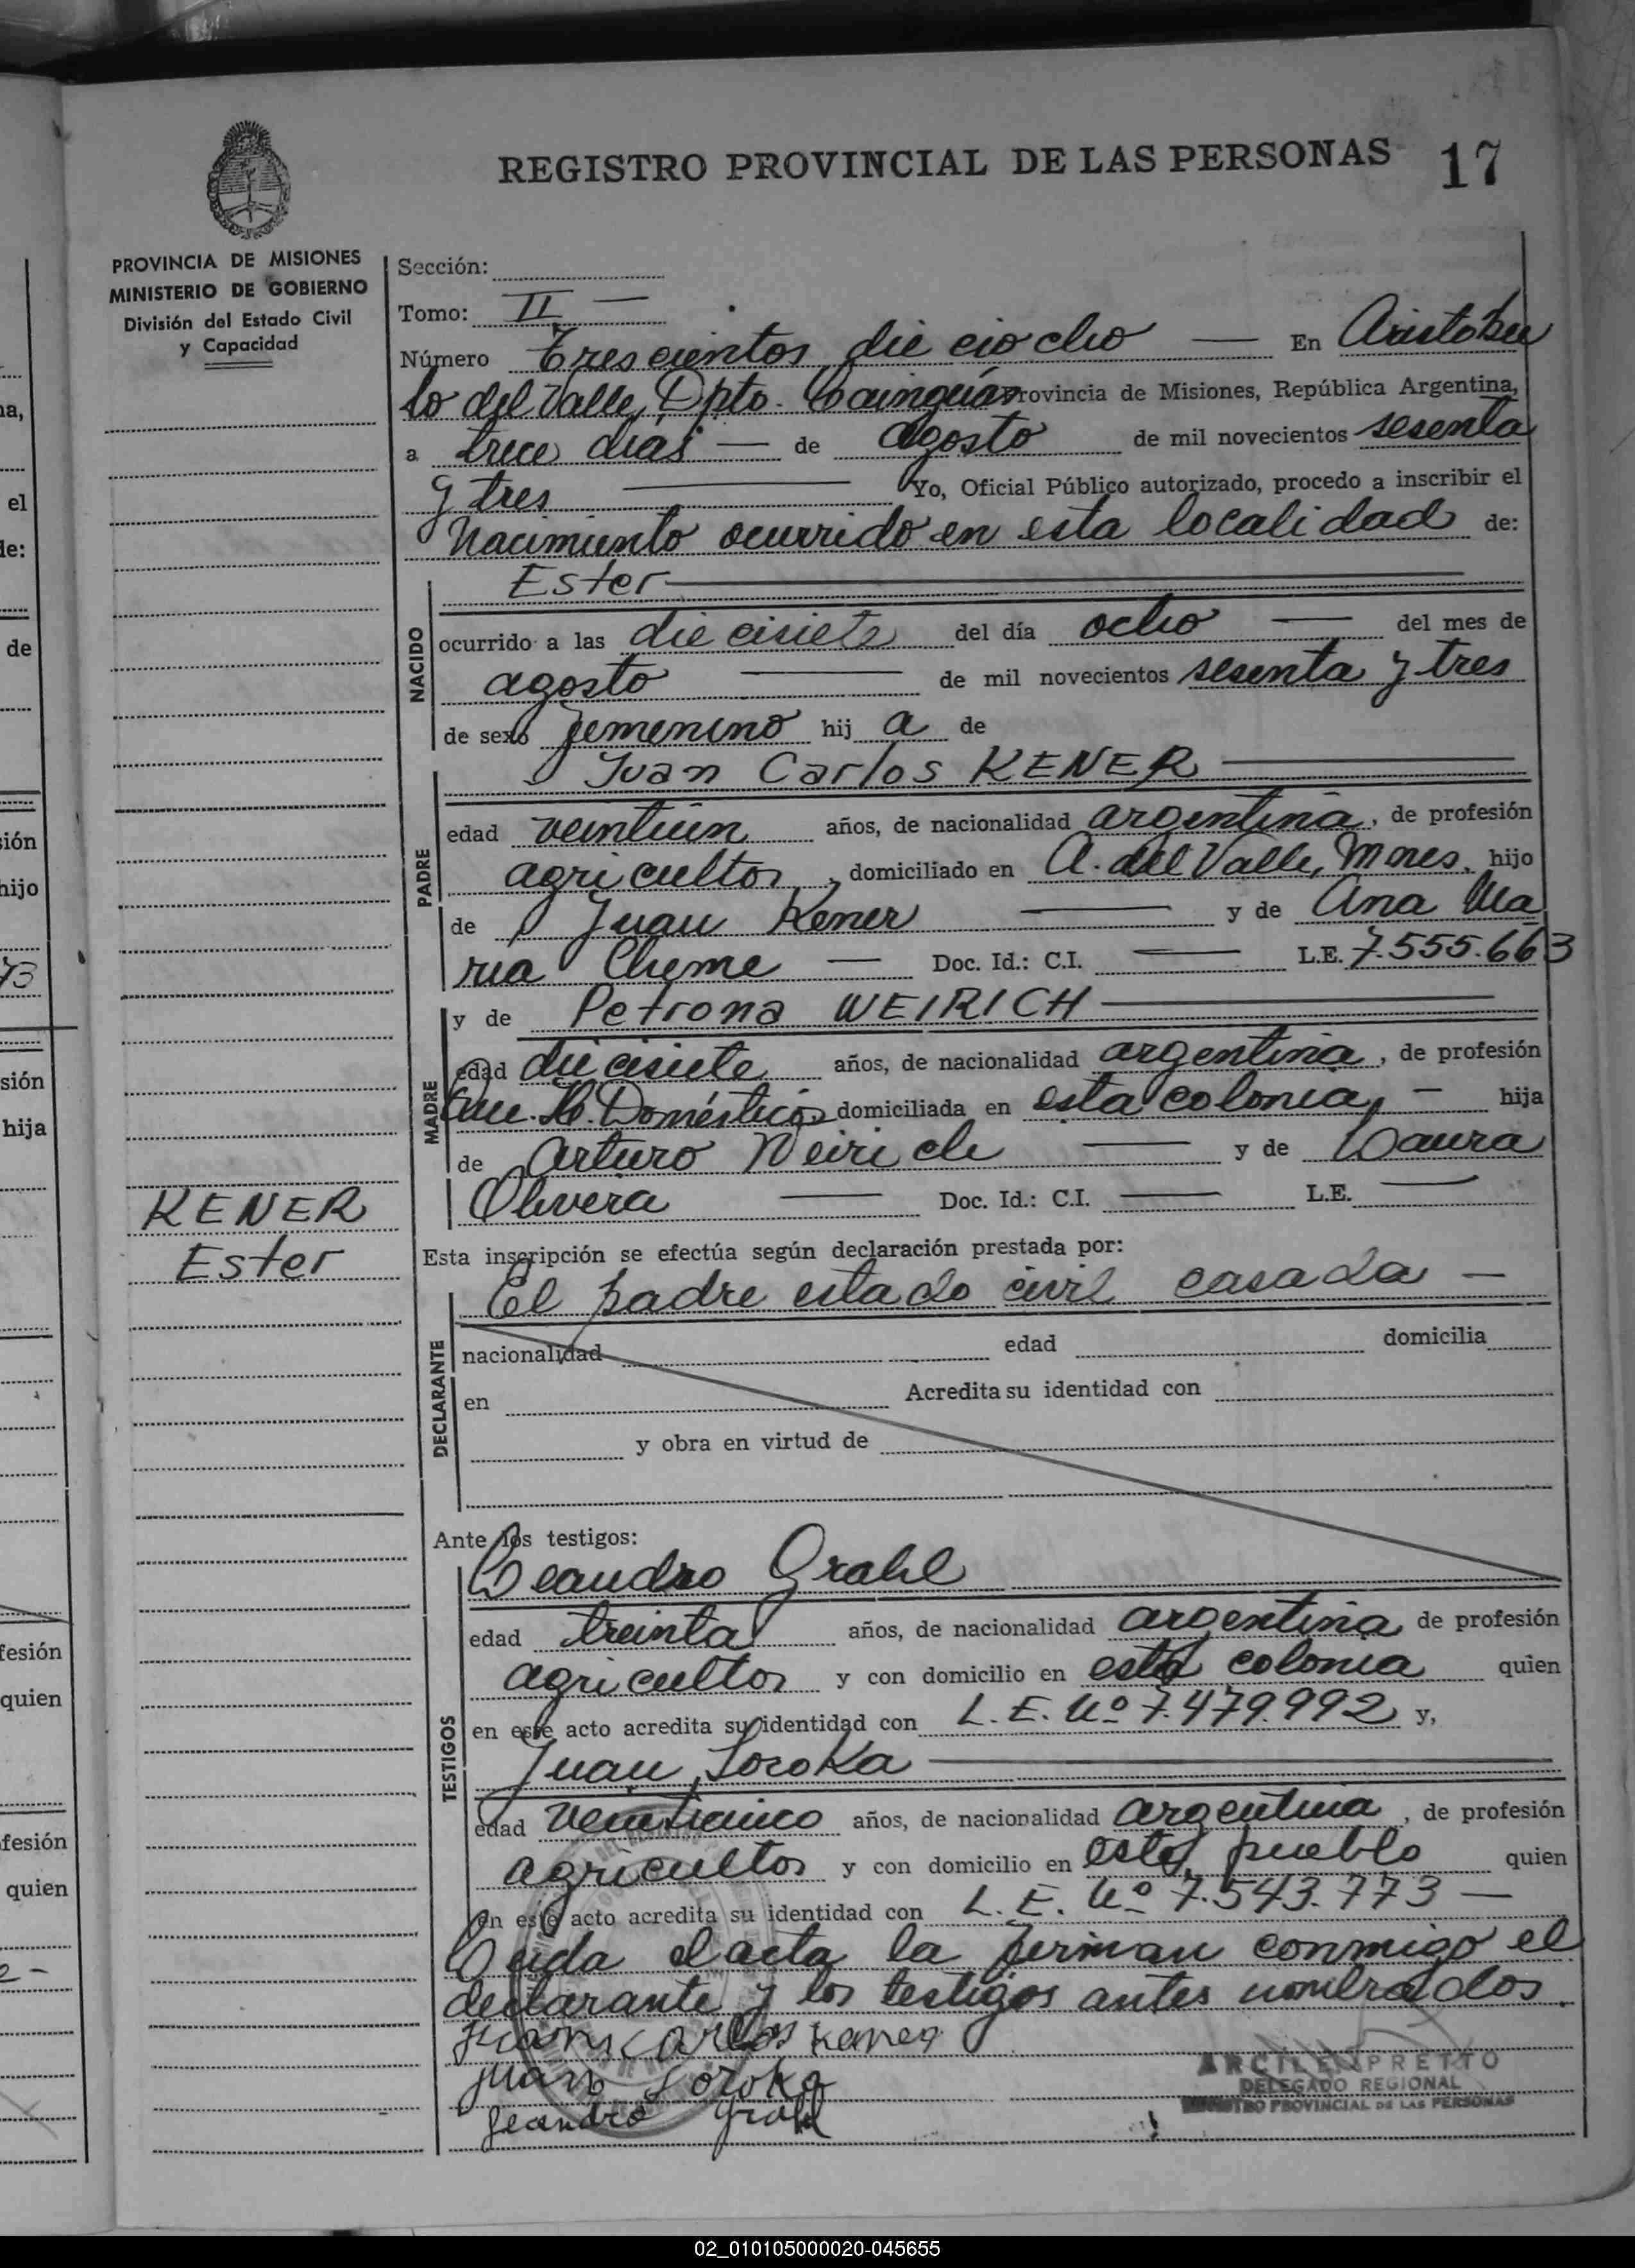 REGISTRO PROVINCIAL DE LAS PERSONAS 17
PROVINCIA DE MISIONES
MINISTERIO DE GOBIERNO
División del Estado Civil
y Capacidad
Sección:
Tomo: II —
Número Trescientos dieciocho — En Aristóbu
lo del Valle, Dpto. Cainguás Provincia de Misiones, República Argentina,
a trece días — de agosto de mil novecientos sesenta
y tres — Yo, Oficial Público autorizado, procedo a inscribir el
Nacimiento ocurrido en esta localidad de:
NACIDO
Ester
ocurrido a las diecisiete del día ocho — del mes de
agosto — de mil novecientos sesenta y tres
de sexo femenino hij a de
PADRE
Juan Carlos KENER —
edad veintiún años, de nacionalidad argentina, de profesión
agricultor, domiciliado en A. del Valle, Mnes. hijo
de Juan Kener — y de Ana Ma
ria — Doc. Id.: C.I. — L.E. 7.555.663
MADRE
y de Petrona WEIRICH —
edad diecisiete años, de nacionalidad argentina, de profesión
Domésticos domiciliada en esta colonia, — hija
de Arturo Weirich — y de Laura
Olivera — Doc. Id.: C.I. — L.E. —
KENER
Ester
Esta inscripción se efectúa según declaración prestada por:
DECLARANTE
El padre estado civil casada —
nacionalidad edad domicilia
en Acredita su identidad con
y obra en virtud de
Ante los testigos:
TESTIGOS
Leandro Grahl
edad treinta años, de nacionalidad argentina, de profesión
agricultor y con domicilio en esta colonia quien
en este acto acredita su identidad con L. E. Nº 7.479.992 y,
Juan Soroka —
edad veinticinco años, de nacionalidad argentina, de profesión
agricultor y con domicilio en este pueblo quien
en este acto acredita su identidad con L. E. Nº 7.543.773 —
Leida el acta la firman conmigo el
declarante y los testigos antes nombrados.
Juan Carlos Kener
Juan Soroka
Leandro Grahl
ARCILE PRETTO
DELEGADO REGIONAL
REGISTRO PROVINCIAL DE LAS PERSONAS
02_010105000020-045655